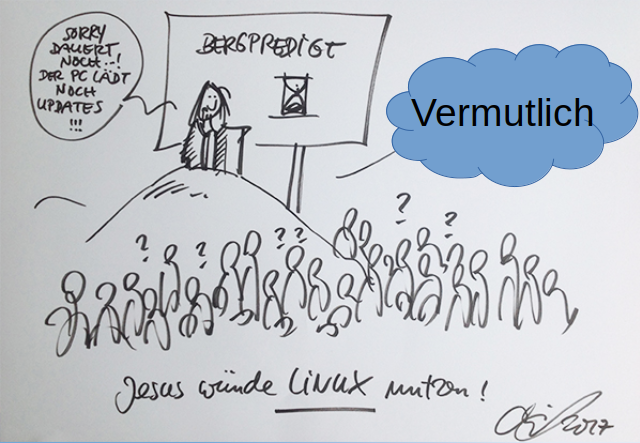 SORRY
DAUERT
NOCH...!
DER PC LÄDT
NOCH
UPDATES
!!!
BERGPREDIGT
Vermutlich
? ? ? ? ? ?
Jesus würde LINUX nutzen!
2017